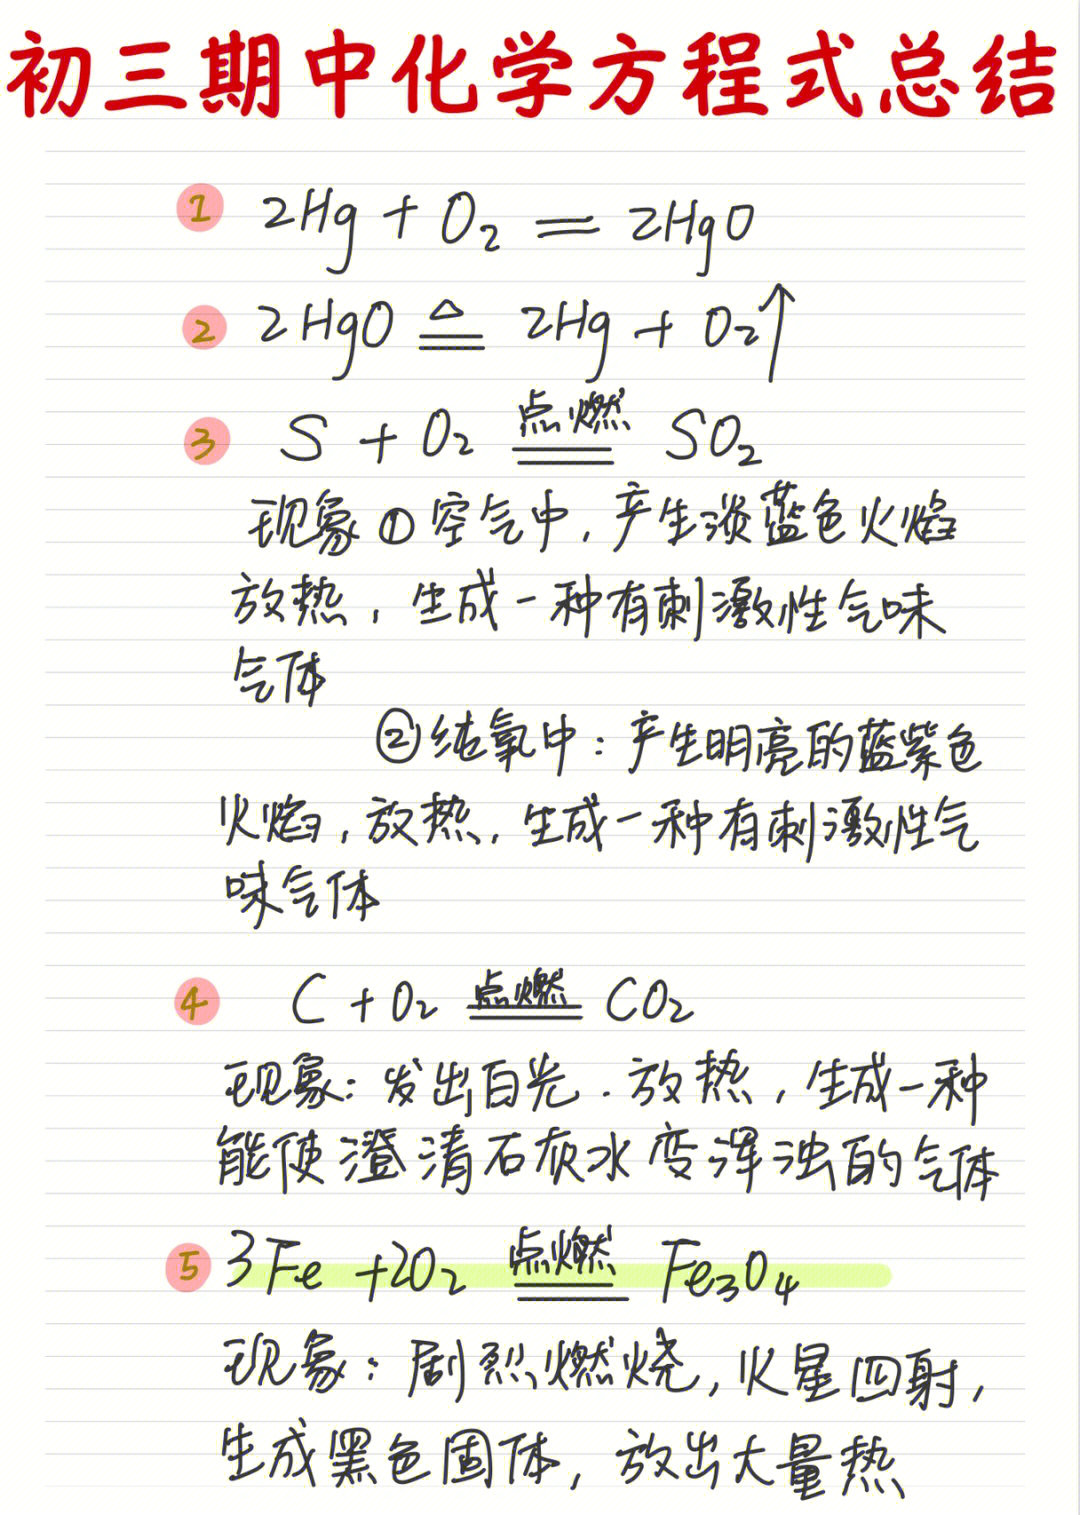 初三期中化学方程式总结
① 2Hg + O₂ == 2HgO
② 2HgO ≜ 2Hg + O₂↑
③ S + O₂ 点燃 == SO₂
现象①空气中,产生淡蓝色火焰
放热,生成一种有刺激性气味
气体
②纯氧中:产生明亮的蓝紫色
火焰,放热,生成一种有刺激性气
味气体
④ C + O₂ 点燃 == CO₂
现象:发出白光.放热,生成一种
能使澄清石灰水变浑浊的气体
⑤ 3Fe + 2O₂ 点燃 == Fe₃O₄
现象:剧烈燃烧,火星四射,
生成黑色固体,放出大量热